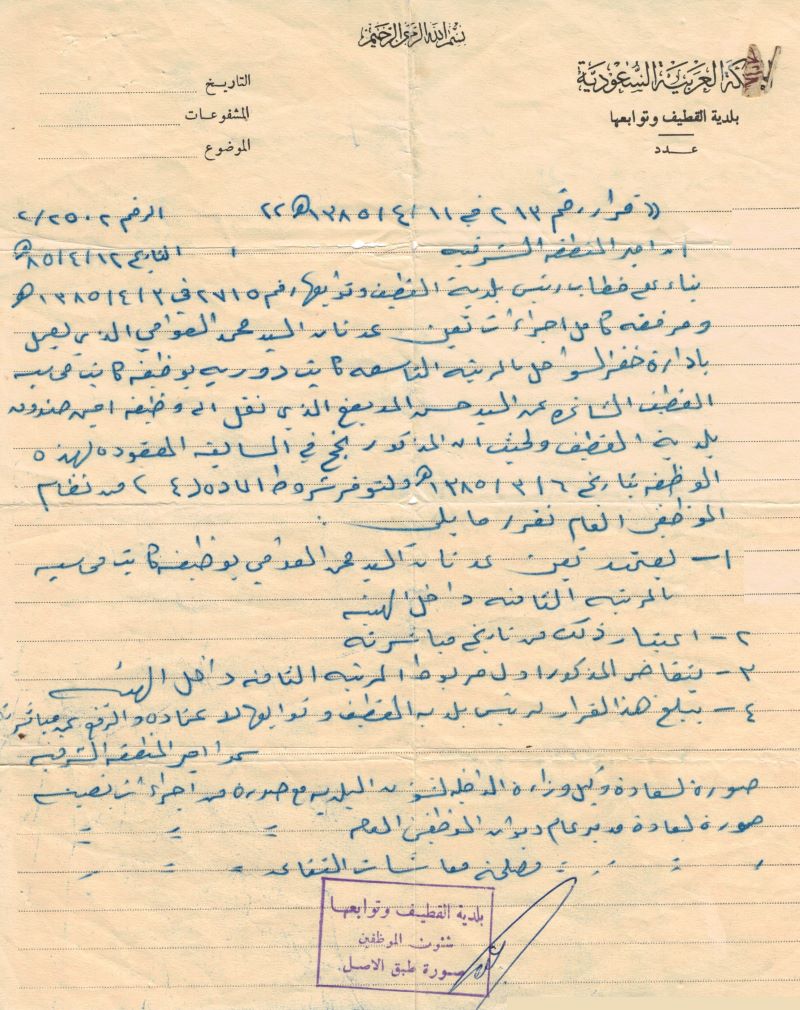 بسم الله الرحمن الرحيم
المملكة العربية السعودية
بلدية القطيف وتوابعها
عدد
التاريخ
المشفوعات
الموضوع
« قرار رقم ٢١٣ في ١١/٤/١٣٨٥هـ ٢٢ الرقم ٢٥٠٢/٢
ان امير المنطقه الشرقيه التاريخ ١٢/٤/٨٥هـ
بناء على خطاب رئيس بلدية القطيف وتوابعها رقم ٢٧١٥ في ٣/٤/١٣٨٥هـ
ومرفقه كامل اجراءات تعين عدنان السيد محمد العوامي الذي يعمل
بادارة خفر السواحل بالمرتبه التاسعه كاتب دوريه بوظيفه كاتب محاسبه
القطيف الشاغره عن السيد حسن المديفع الذي نقل الى وظيفه امين صندوق
بلدية القطيف ولحيث ان المذكور نجح في المسابقه المعقوده لهذه
الوظيفه بتاريخ ٦/٣/١٣٨٥هـ ولتوفر شروط الماده ٤ من نظام
الموظفين العام نقرر ما يلي :
١- يعتمد تعين عدنان السيد محمد العوامي بوظيفه كاتب محاسبه
بالمرتبه الثامنه داخل الهيئه
٢- اعتبار ذلك من تاريخ مباشرته
٣- يتقاضى المذكور اول مربوط المرتبه الثامنه داخل الهيئه
٤- يبلغ هذا القرار لرئيس بلدية القطيف وتوابعها لاعتماده والرفع عن مباشرته
امير المنطقه الشرقيه
صورة لسعادة وكيل وزارة الداخليه لشؤون البلديه مع صورة من اجراءات تعيينه
صورة لسعادة مدير عام ديوان الموظفين العام = = =
= = = مصلحة معاشات التقاعد = = =
بلدية القطيف وتوابعها
شئون الموظفين
صورة طبق الاصل